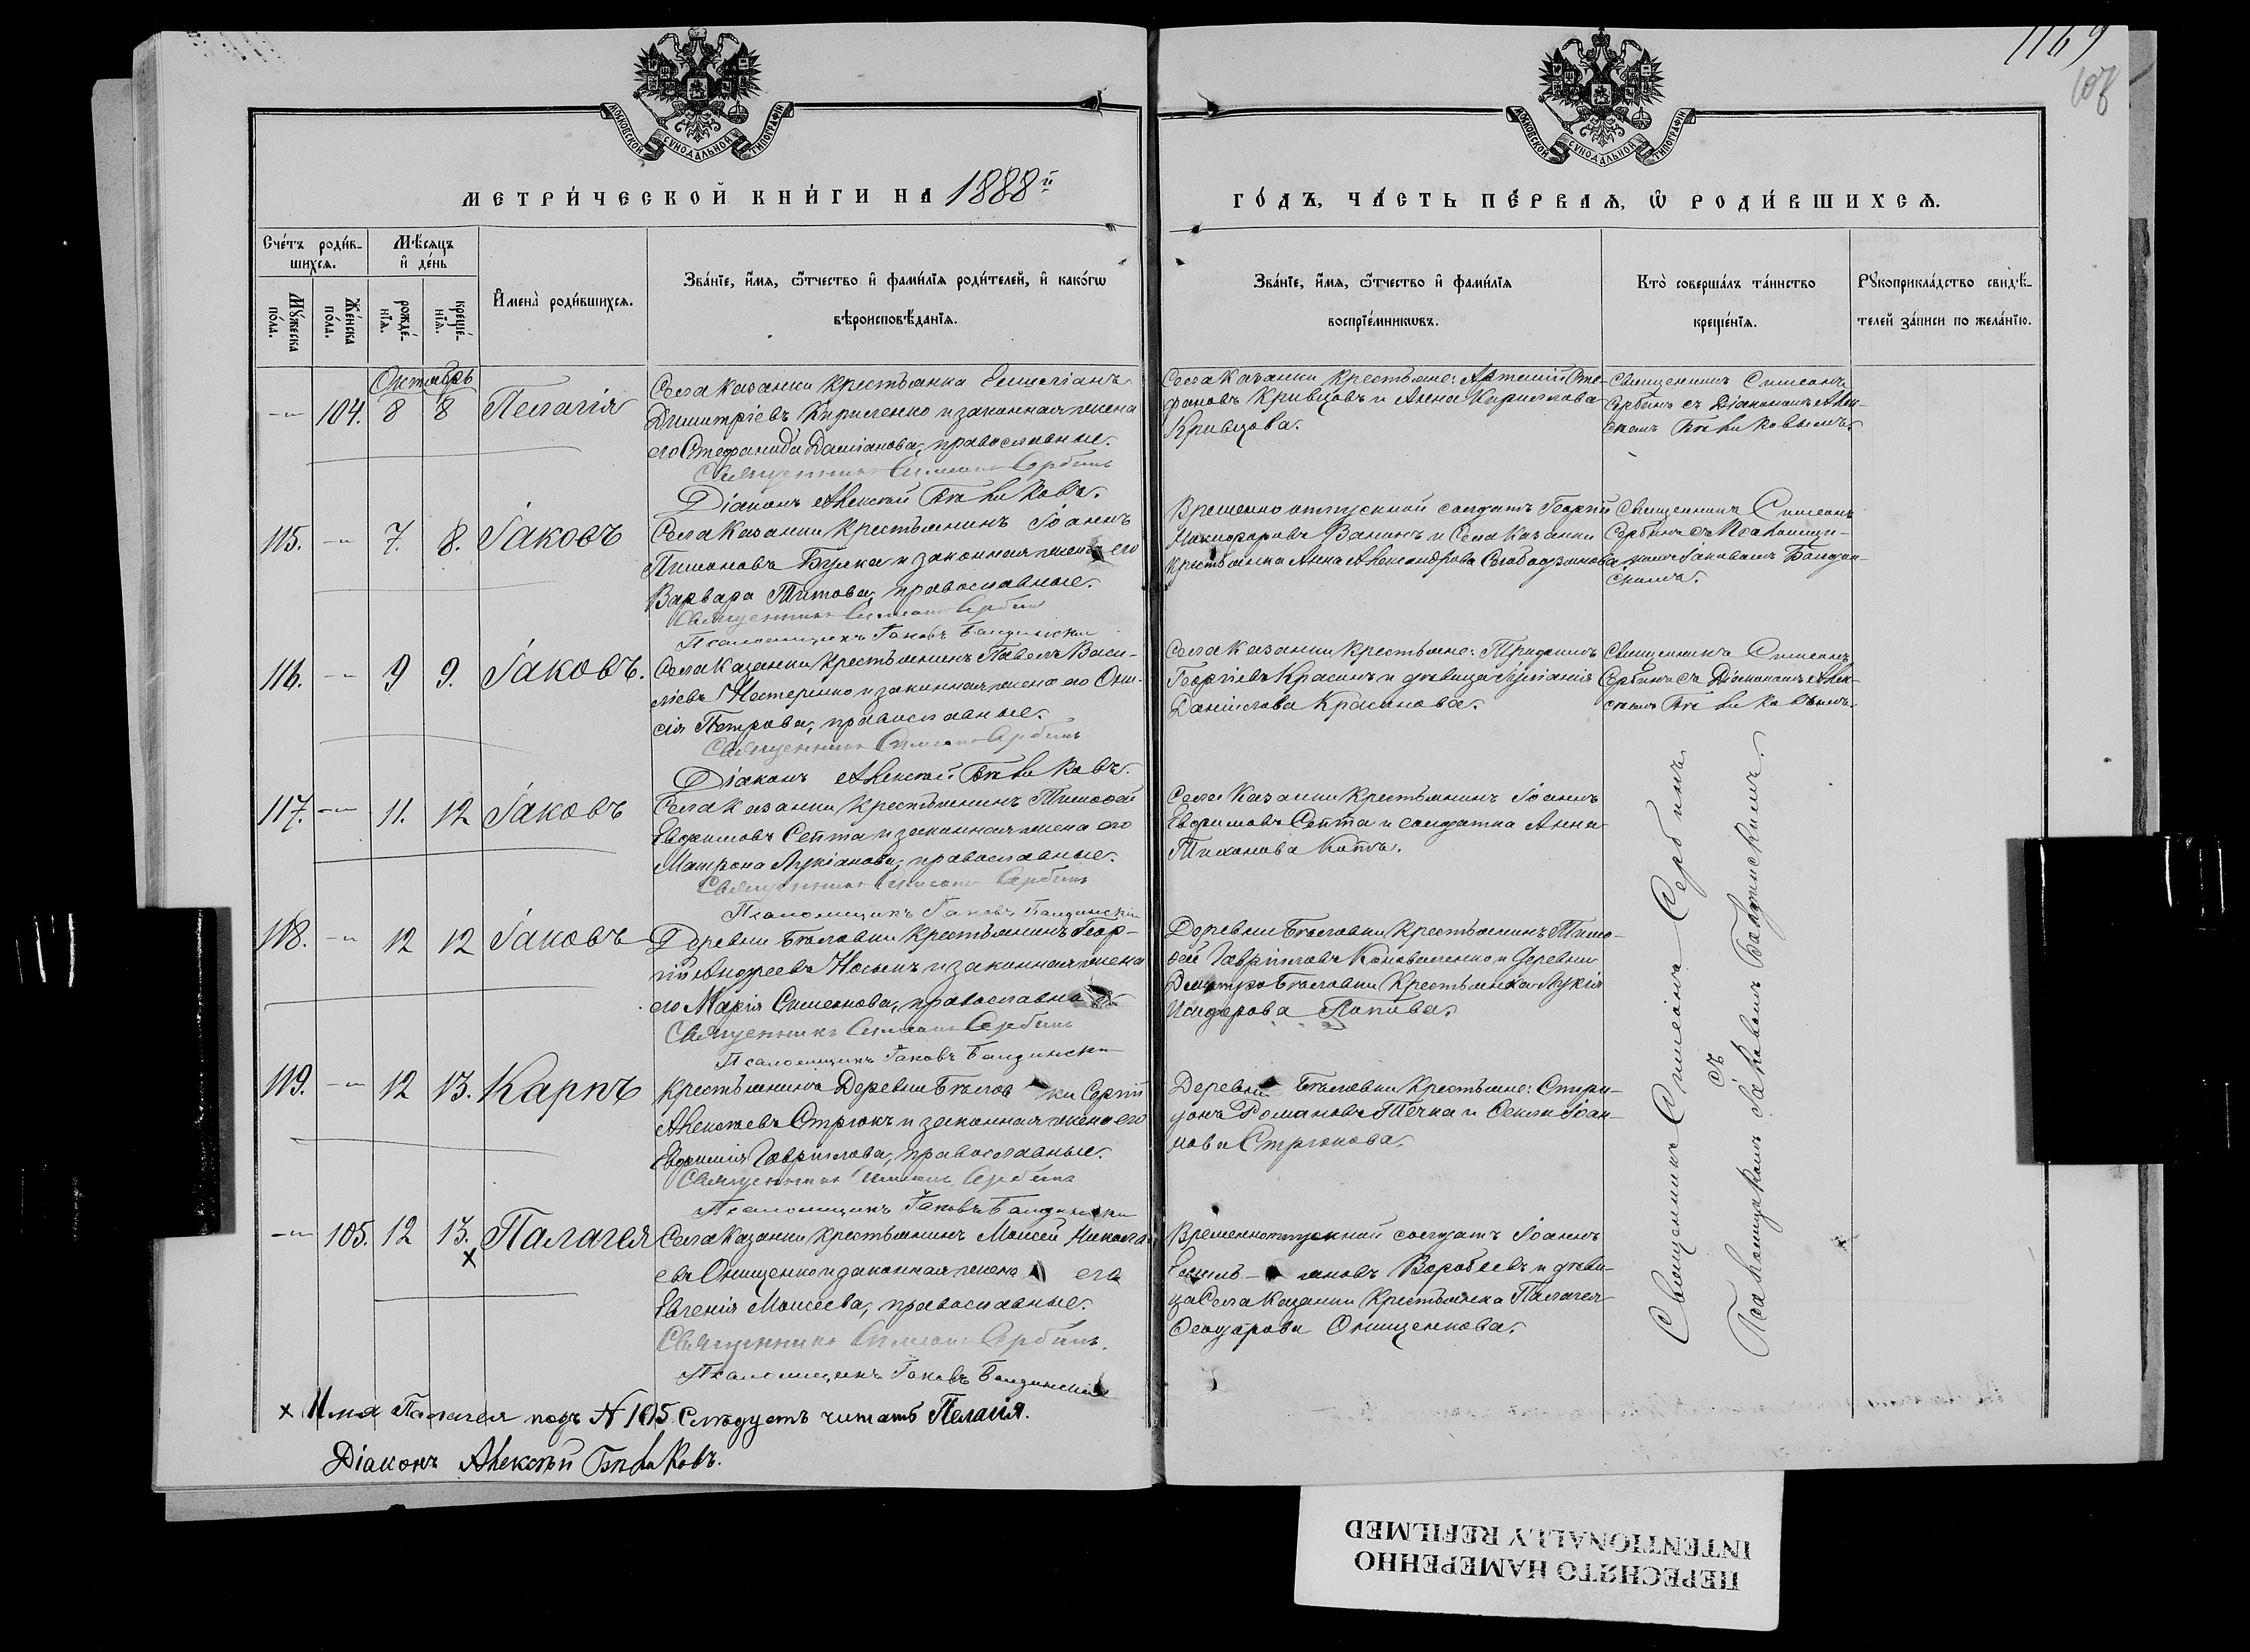 1169
108
МОСКОВСКОЙ СѴНОДАЛЬНОЙ ТИПОГРАФІИ
МОСКОВСКОЙ СѴНОДАЛЬНОЙ ТИПОГРАФІИ
МЕТРИ́ЧЕСКОЙ КНИ́ГИ НА 1888й
ГО́ДЪ, ЧА́СТЬ ПЕ́РВАѦ, Ѡ РОДИ́ВШИХСѦ.
Сче́тъ роди́вшихсѧ.
Мѣ́сѧцъ и҆ де́нь
Мꙋ́жеска по́ла.
Же́нска по́ла.
рожде́нїѧ.
креще́нїѧ.
И҆мена̀ роди́вшихсѧ.
Зва́нїе, и҆́мѧ, ѻ҆́тчество и҆ фами́лїѧ роди́телей, и҆ како́гѡ
вѣроисповѣ́данїѧ.
Зва́нїе, и҆́мѧ, ѻ҆́тчество и҆ фами́лїѧ
воспрїе́мникѡвъ.
Кто̀ соверша́лъ та́инство
креще́нїѧ.
Рꙋкоприкла́дство свидѣ́-
телей за́писи по жела́нїю.
Октябрь
104. 8 8 Пелагія
Села Казанки крестьянинъ Емиліанъ
Димитріевъ Кириленко и законная жена
его Стефанида Даміанова, православные.
Священникъ Симеонъ Сербинъ
Діаконъ Алексѣй Бѣликовъ.
Села Казанки крестьяне: Артемій Сте-
фановъ Кривцовъ и Анна Кириллова
Кривцова.
Священникъ Симеонъ
Сербинъ съ Діакономъ Алек-
сѣемъ Бѣликовымъ.
115. 7. 8. Іаковъ
Села Казанки крестьянинъ Іоаннъ
Пимоновъ Булка и законная жена его
Варвара Титова, православные.
Священникъ Симеонъ Сербинъ
Псаломщикъ Іаковъ Бандинскій
Временно отпускной солдатъ Георгій
Никифоровъ Ванинъ и Села Казанки
крестьянка Анна Александрова
Священникъ Симеонъ
Сербинъ съ Псаломщи-
комъ Іаковомъ Бандин-
скимъ.
116. 9 9. Іаковъ.
Села Казанки крестьянинъ Павелъ Васи-
ліевъ Нестеренко и законная жена его
сія Петрова, православные.
Священникъ Симеонъ Сербинъ
Діаконъ Алексѣй Бѣликовъ.
Села Казанки крестьяне: Трифонъ
Георгіевъ Красинъ и дѣвица Іуліанія
Даніилова Красинова.
Священникъ Симеонъ
Сербинъ съ Діакономъ Алек-
сѣемъ Бѣликовымъ.
117. 11. 12 Іаковъ
Села Казанки крестьянинъ Тимофей
Евфимовъ Септа и законная жена его
Матрона Лукіанова, православные.
Священникъ Симеонъ Сербинъ
Псаломщикъ Іаковъ Бандинскій
Села Казанки крестьянинъ Іоаннъ
Евфимовъ Септа и солдатка Анна
Тихонова
118. 12 12 Іаковъ
Деревни Бѣловки крестьянинъ Геор-
гій Андреевъ Носыкъ и законная жена
его Марія Симеонова, православные
Священникъ Симеонъ Сербинъ
Псаломщикъ Іаковъ Бандинскій
Деревни Бѣловки крестьянинъ Тимо-
фей Гавріиловъ Коноваленко и Деревни
Дмитро Бѣловки крестьянка Лукія
Исидорова Попова.
119. 12 13. Карпъ
Крестьянинъ Деревни Бѣловки Сергій
Алексѣевъ Стрюкъ и законная жена его
Евфимія Гавріилова, православные.
Священникъ Симеонъ Сербинъ
Псаломщикъ Іаковъ Бандинскій
Деревни Бѣловки крестьяне: Спири-
донъ Романовъ Течка и Іоан-
нова Стрюкова.
105. 12 13. × Палагея
Села Казанки крестьянинъ Моисей Никола-
евъ Онищенко и законная жена его
Евгенія Моисеева, православные.
Священникъ Симеонъ Сербинъ.
Псаломщикъ Іаковъ Бандинскій
Временноотпускной солдатъ Іоаннъ
Емельяновъ Воробьевъ и дѣви-
ца Села Казанки крестьянка Палагея
Ѳеодорова Онищенкова.
Священникъ Симеонъ Сербинъ
съ
Псаломщикомъ Іаковомъ Бандинскимъ.
× Имя Палагея подъ № 105 Слѣдуетъ читать Пелагія.
Діаконъ Алексѣй Бѣликовъ.
ПЕРЕСНЯТО НАМЕРЕННО
INTENTIONALLY REFILMED